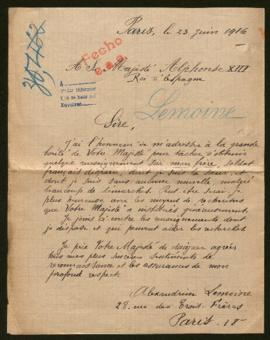 Paris, le 23 juin 1916
Fecho
A Sa Majesté Alphonse XIII
Roi d'Espagne
Lemoine
Sire,
J'ai l'honneur de m'adresser à la grande
bonté de Votre Majesté pour tâcher d'obtenir
quelque renseignement sur mon frère, soldat
français disparu, dont je suis la sœur et
dont je suis sans aucune nouvelle, malgré
beaucoup de démarches. Peut-être serai-je
plus heureuse avec les moyens de recherches
que Votre Majesté a institués gracieusement.
Je joins ci-contre les renseignements dont
je dispose et qui peuvent aider les recherches
Je prie Votre Majesté de daigner agréer
Sire mes plus sincères sentiments de
reconnaissance et les assurances de mon
profond respect.
Alexandrine Lemoine
28 rue des Trois-Frères
Paris. 18